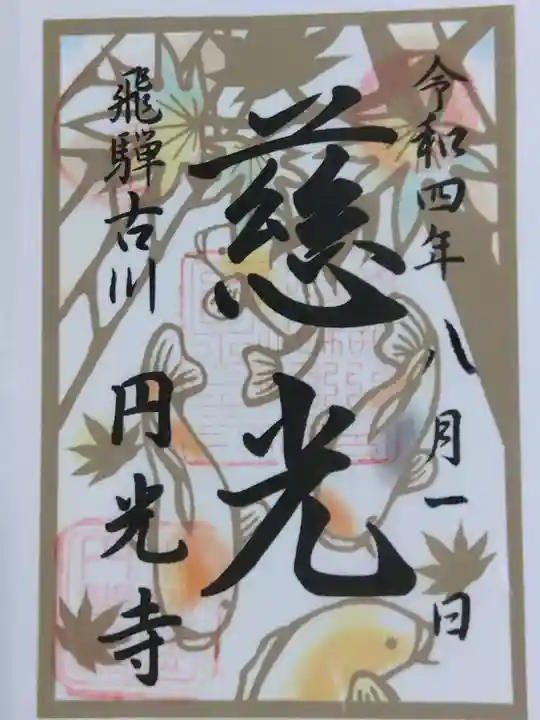 令和四年八月一日
慈光
飛騨古川 円光寺